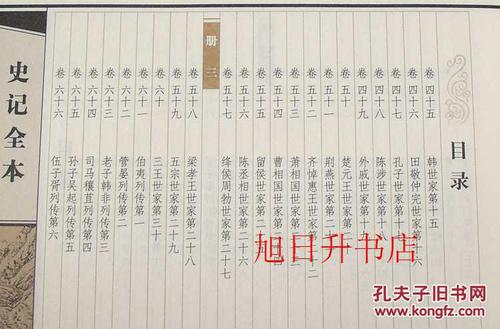 目录
卷四十五 韩世家第十五
卷四十六 田敬仲完世家第十六
卷四十七 孔子世家第十七
卷四十八 陈涉世家第十八
卷四十九 外戚世家第十九
卷五十 楚元王世家第二十
卷五十一 荆燕世家第二十一
卷五十二 齐悼惠王世家第二十二
卷五十三 萧相国世家第二十三
卷五十四 曹相国世家第二十四
卷五十五 留侯世家第二十五
卷五十六 陈丞相世家第二十六
卷五十七 绛侯周勃世家第二十七
册三
卷五十八 梁孝王世家第二十八
卷五十九 五宗世家第二十九
卷六十 三王世家第三十
卷六十一 伯夷列传第一
卷六十二 管晏列传第二
卷六十三 老子韩非列传第三
卷六十四 司马穰苴列传第四
卷六十五 孙子吴起列传第五
卷六十六 伍子胥列传第六
史记全本
旭日升书店
孔夫子旧书网
www.kongfz.com